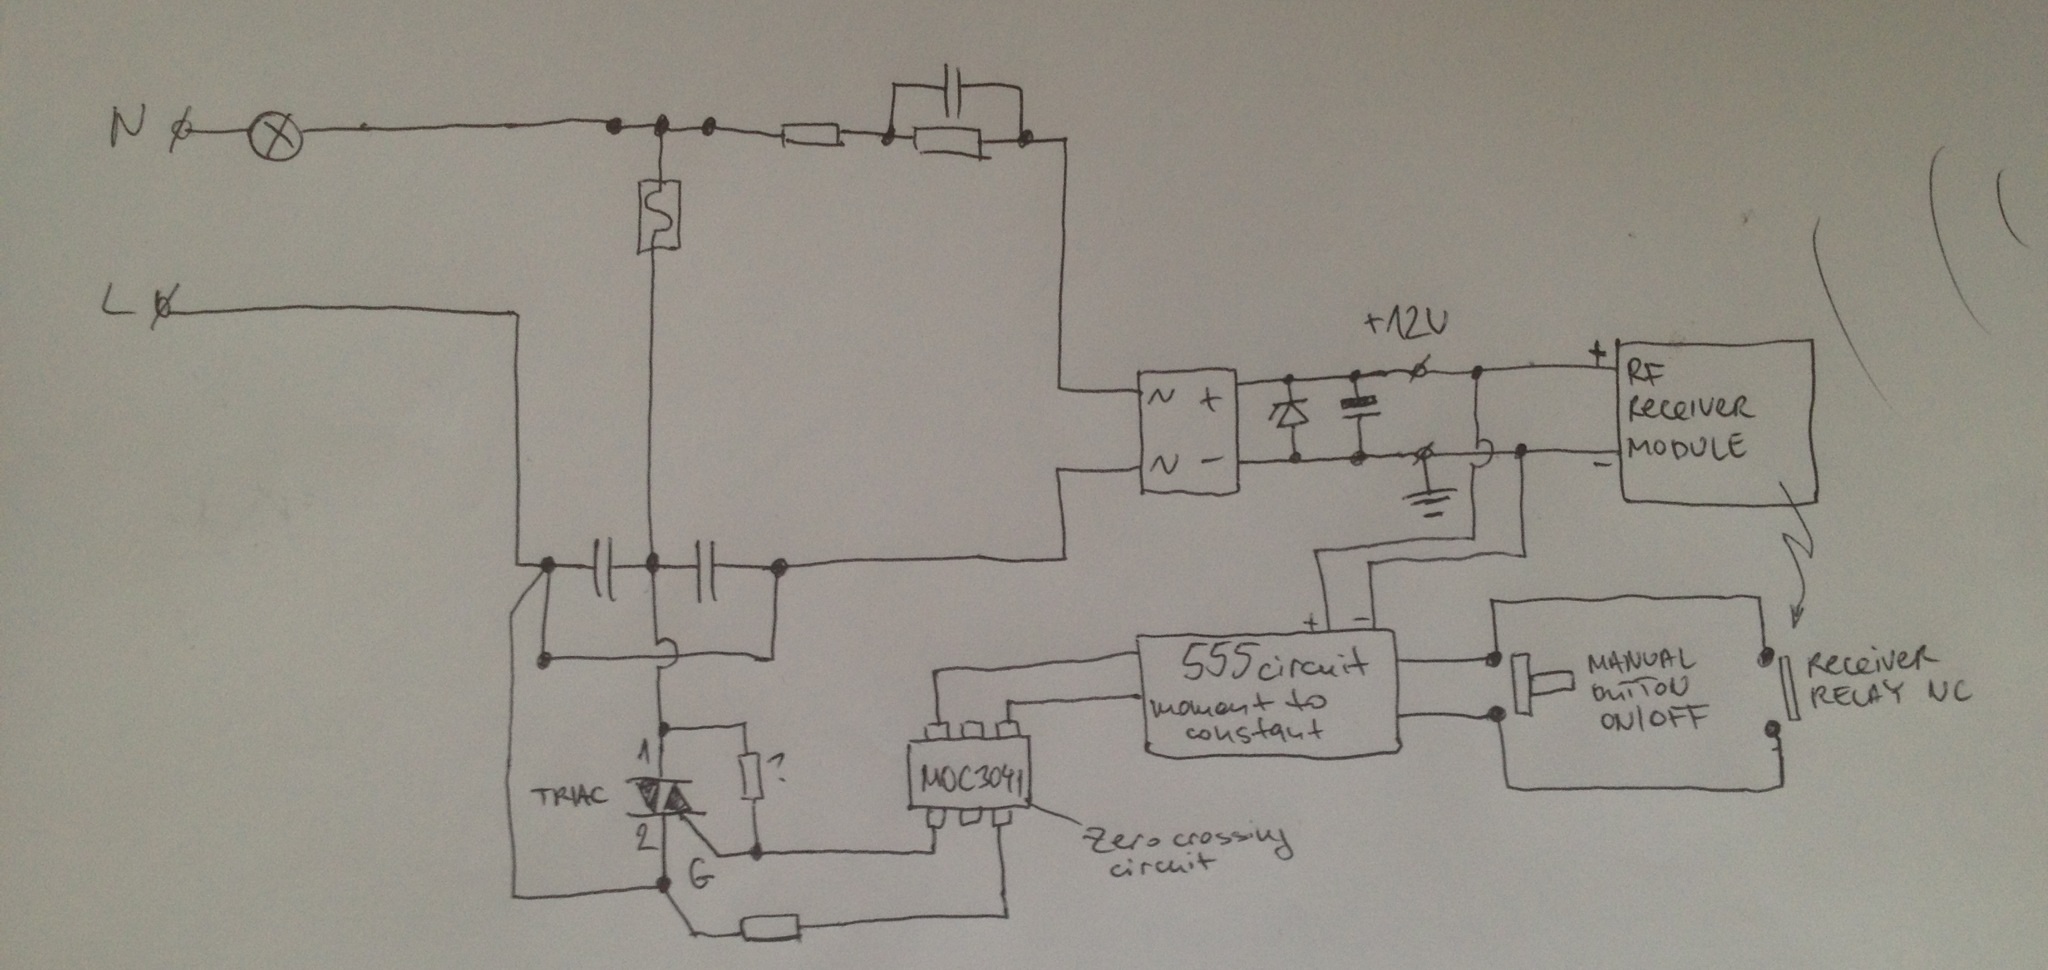 N
L
+12V
~ +
~ -
+
RF
Receiver
MODULE
-
+ -
555 circuit
moment to
constant
MANUAL
button
ON/OFF
Receiver
RELAY NC
1
?
TRIAC
MOC3041
2
G
Zero crossing
circuit